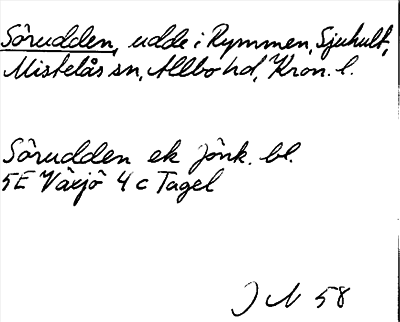 Sörudden, udde i Rymmen, Sjuhult,
Mistelås sn, Allbo hd, Kron. l.
Sörudden ek Jönk. bl.
5E Växjö 4 c Tagel
J N 58